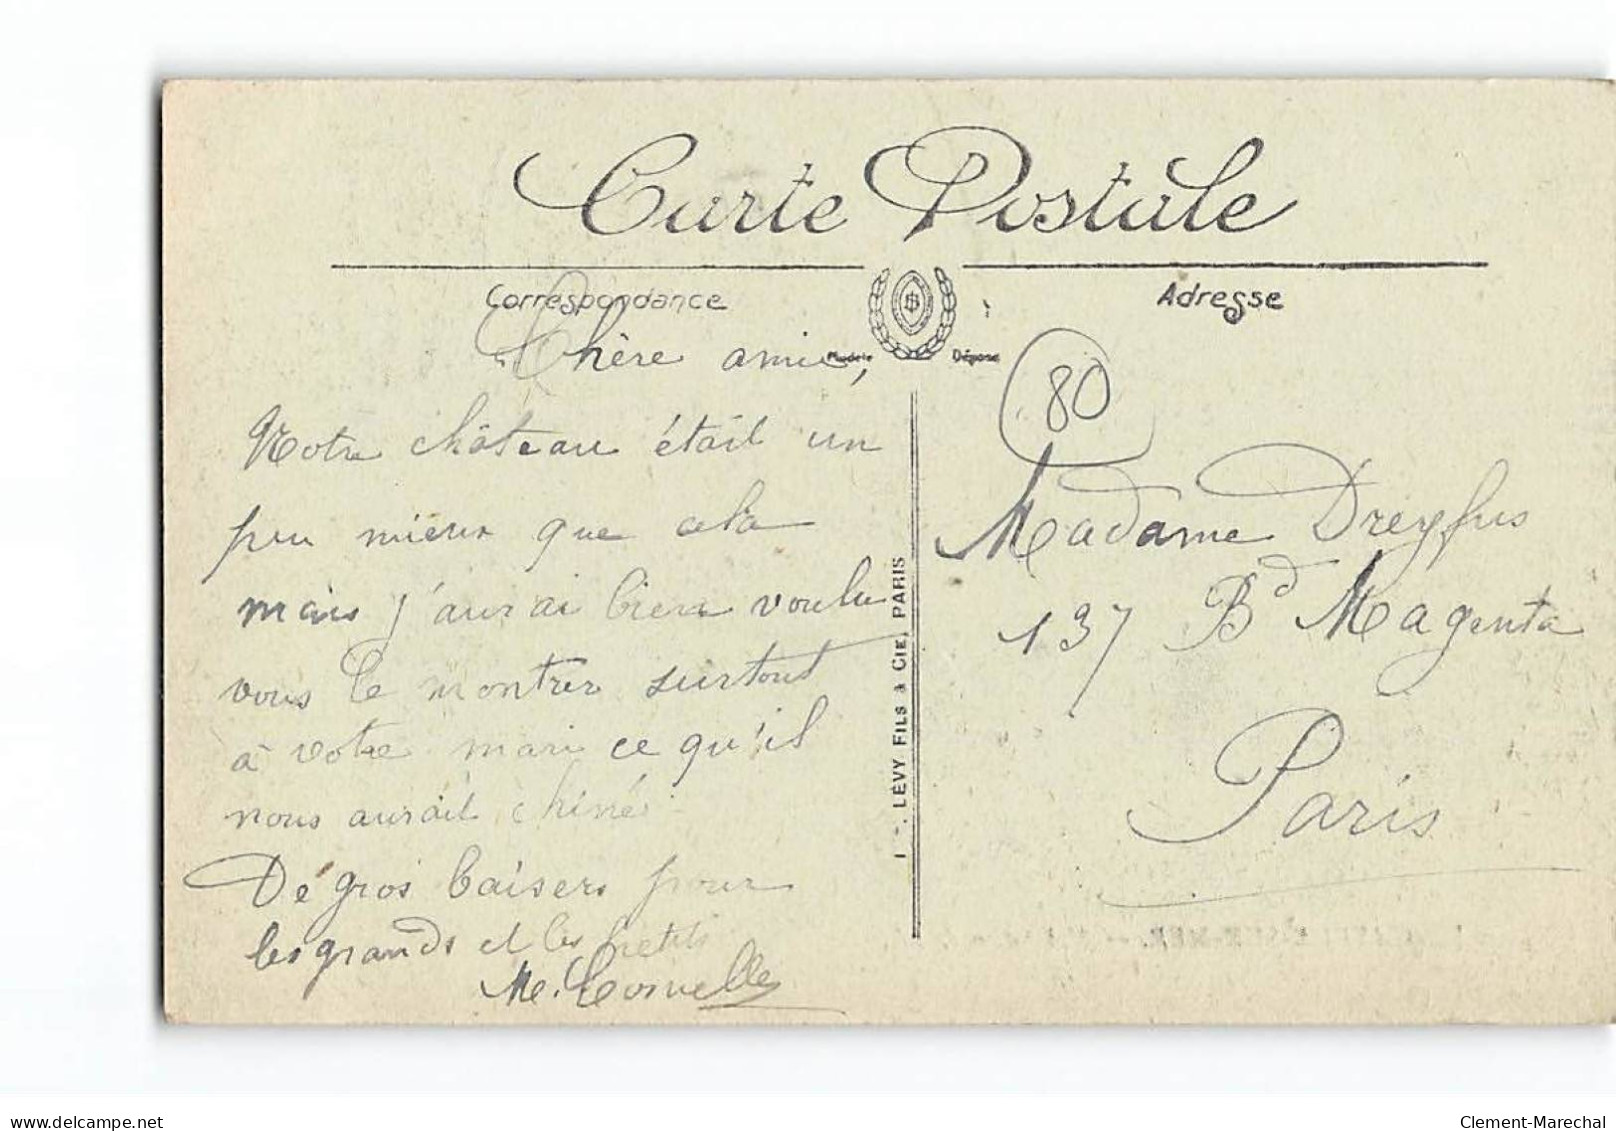 Carte Postale
Correspondance
Adresse
Modèle Déposé
Chère amie,
Notre château était un
peu mieux que cela
mais j'aurai bien voulu
vous le montrer surtout
à votre mari ce qu'il
nous aurait chiné
De gros baisers pour
les grands et les petits
M.
LÉVY FILS & CIE, PARIS
80
Madame Dreyfus
137 Bd Magenta
Paris
Clement-Marechal